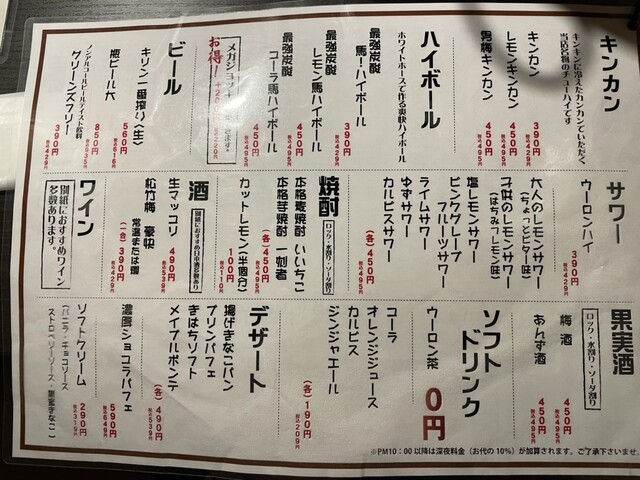 キンカン
キンキンに冷えたカンカンでいただく
当店名物のチューハイです
キンカン 390円 税込429円
レモンキンカン 450円 税込495円
男梅キンカン 450円 税込495円
ハイボール
ホワイトホースで作る爽快ハイボール
最強炭酸
馬!ハイボール 390円 税込429円
最強炭酸
レモン馬ハイボール 450円 税込495円
最強炭酸
コーラ馬ハイボール 450円 税込495円
メガジョッキ
お得!
ビール
キリン一番搾り(生) 560円 税込616円
瓶ビール大 850円 税込935円
ノンアルコールビールテイスト飲料
グリーンズフリー 390円 税込429円
サワー
ウーロンハイ 390円 税込429円
大人のレモンサワー
(ちょっとビター味)
子供のレモンサワー
(はちみつレモン味)
塩レモンサワー
ピンクグレープ
フルーツサワー
ライムサワー
ゆずサワー
カルピスサワー
(各)450円 税込495円
焼酎
ロック・水割り・ソーダ割り
本格麦焼酎 いいちこ
本格芋焼酎 一刻者
(各)450円 税込495円
カットレモン(半個分) 100円 税込110円
酒
別紙におすすめ日本酒多数あり
生マッコリ 490円 税込539円
松竹梅 豪快
常温または燗
(一合)390円 税込429円
ワイン
別紙におすすめワイン
多数あります。
果実酒
ロック・水割り・ソーダ割り
梅酒 450円 税込495円
あんず酒 450円 税込495円
ソフト
ドリンク
ウーロン茶 0円
コーラ
オレンジジュース
カルピス
ジンジャエール
(各)190円 税込209円
デザート
揚げきなこパン
プリンパフェ
きはちソフト
メイプルポンデ
(各)490円 税込539円
濃厚ショコラパフェ 590円 税込649円
ソフトクリーム 290円 税込319円
(バニラ・チョコソース
ストロベリーソース・黒蜜きなこ)
※PM10:00以降は深夜料金(お代の10%)が加算されます。ご了承下さいませ。